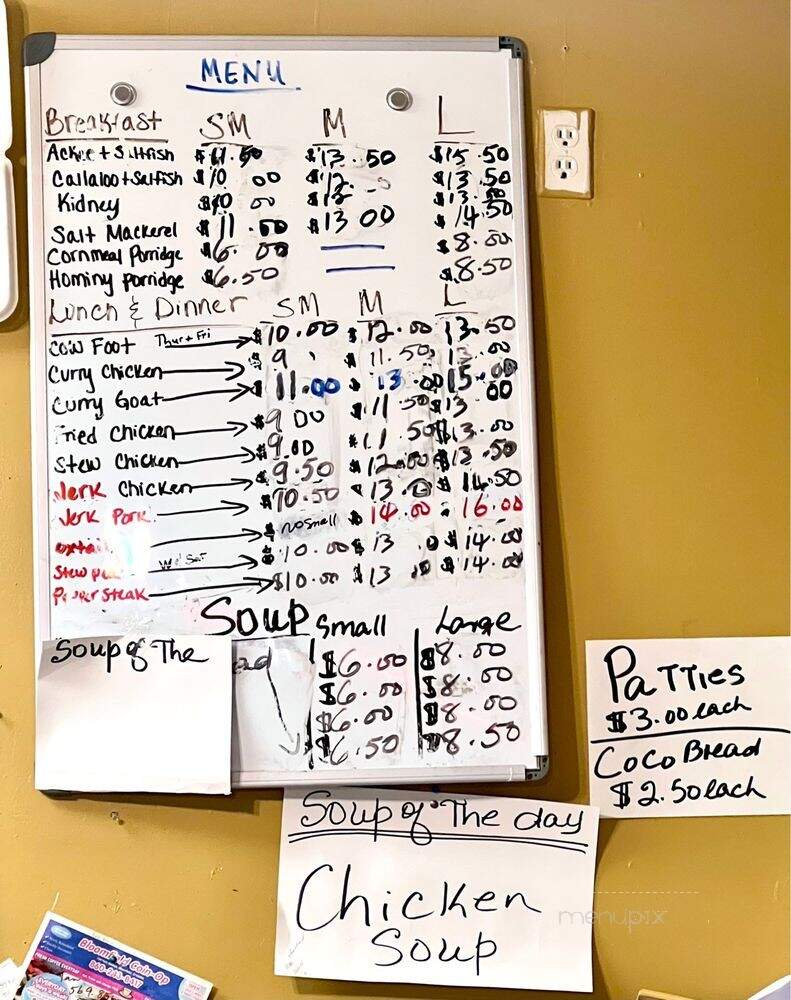 MENU
Breakfast SM M L
Ackee + Saltfish $11.50 $13.50 $15.50
Callaloo + Saltfish $10 00 $12. $13.50
Kidney $10 00 $12 $13.50
Salt Mackerel $11.50 $13 00 $14.50
Cornmeal Porridge $6.00 $8.50
Hominy Porridge $6.50 $8.50
Lunch & Dinner SM M L
Cow Foot Thur + Fri $10.00 $12.00 13.50
Curry Chicken $9 $11.50 13.00
Curry Goat $11.00 $13.00 15.00
Fried Chicken $9 00 $11.50 $13.00
Stew Chicken $9.00 $11.50 $13.00
Jerk Chicken $9.50 $12.00 $13.50
Jerk Pork $10.50 $13.00 $14.50
oxtail $ no small $14.00 16.00
Stew $10.00 $13 $14.00
Pepper Steak $10.00 $13 $14.00
Soup Small Large
Soup of The
$6.00 $8.00
$6.00 $8.00
$6.00 $8.00
$6.50 $8.50
Patties
$3.00 each
CoCo Bread
$2.50 each
Soup of The day
Chicken
Soup
menupix
Bloomfield Coin-Op
860-243-8417